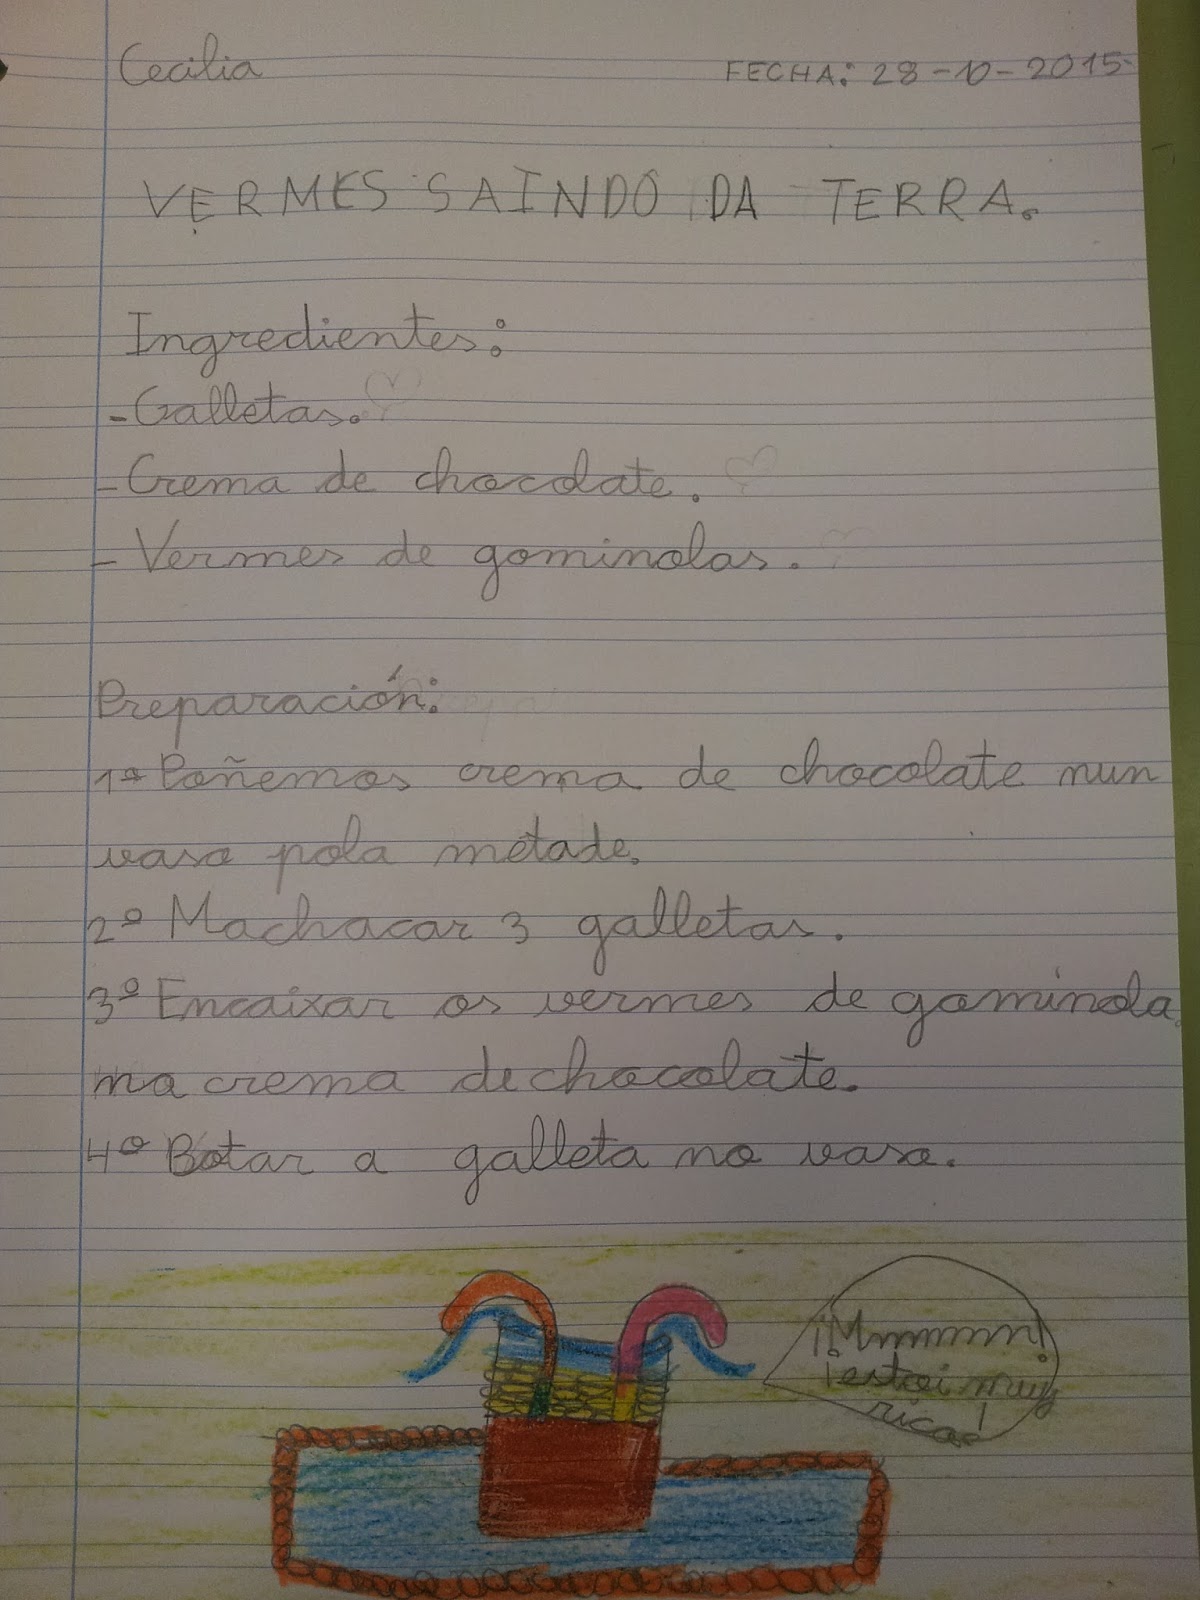 Cecilia
FECHA: 28-10-2015
VERMES SAINDO DA TERRA.
Ingredientes:
-Galletas.
-Crema de chocolate.
-Vermes de gominolas.
Preparación:
1º Poñemos crema de chocolate nun
vaso pola metade.
2º Machacar 3 galletas.
3º Encaixar os vermes de gominola
na crema de chocolate.
4º Botar a galleta no vaso.
¡Mmmmm!
¡estoi muy
rico!